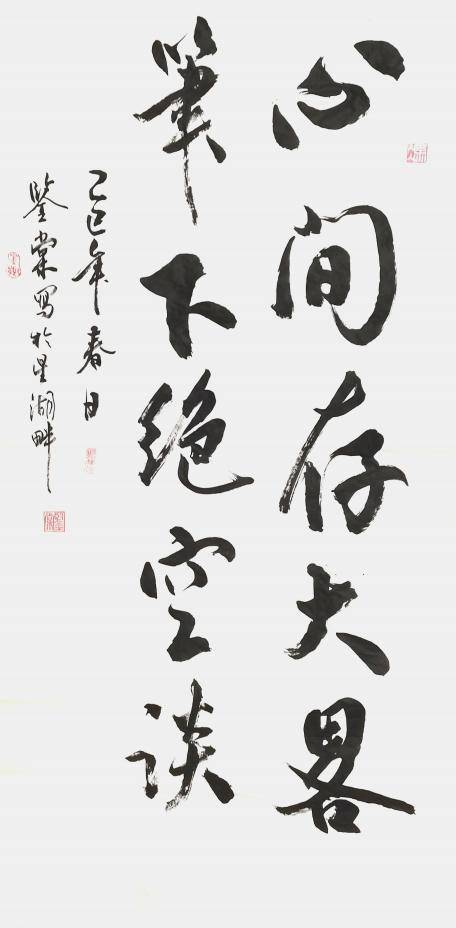 心间存大畧
笔下绝空谈
乙巳年春日
鉴棠写于星湖畔